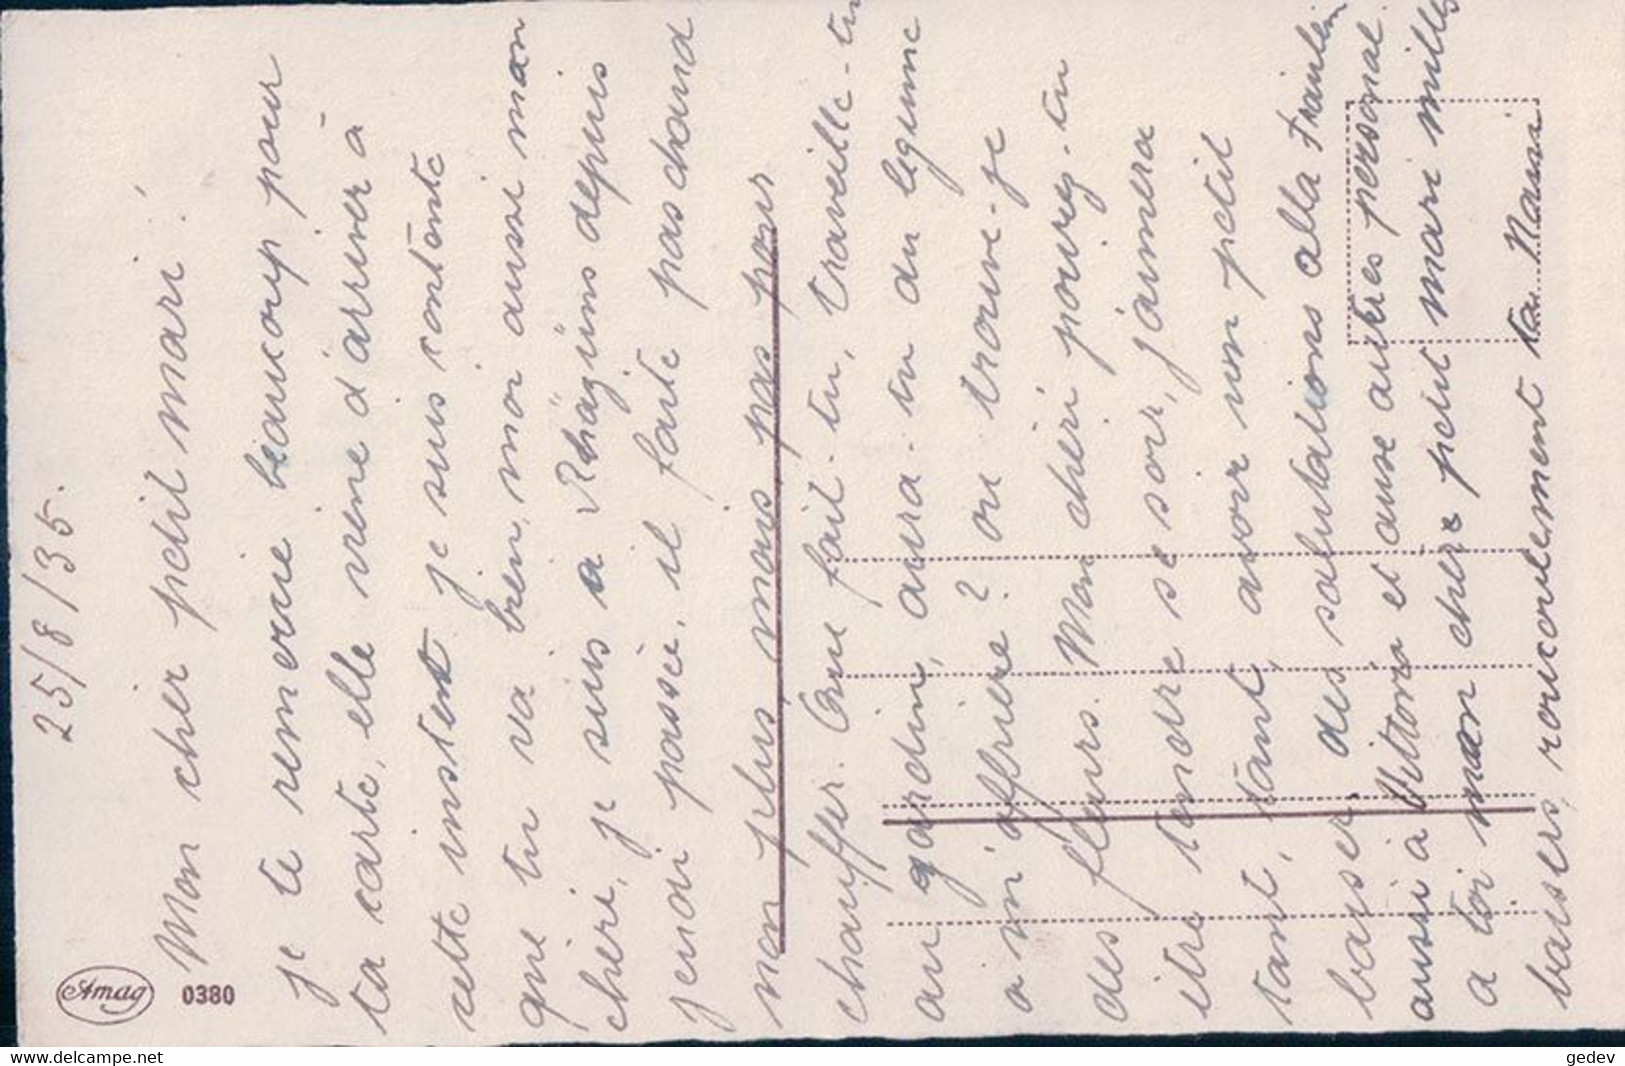 25/8/35.
Mon cher petit mari!
je te remercie beaucoup pour
ta carte, elle viene d'arriver à
cette instent je suis contente
que tu va bien, moi aussi mon
chéri, je suis a Rhäzüns depuis
jeudi passée, il faite pas chaud
non plus, mais pas pour
chauffer. Que fait-tu, traveille-tu
au gardin, aura-tu du legume
a m'offrire? ou trouve-je
des fleurs. Mon chéri poureg-tu
être tendre se soir, j'aimera
tant, tant, avoir un petit
baiser, des salutations alla Fraulein
aussi à Vittoria et ausse autres personal.
a toi mon chère petit mari milles
baisers, roucoulement ta Nani
Amag 0380
https://www.delcampe.net
gedev